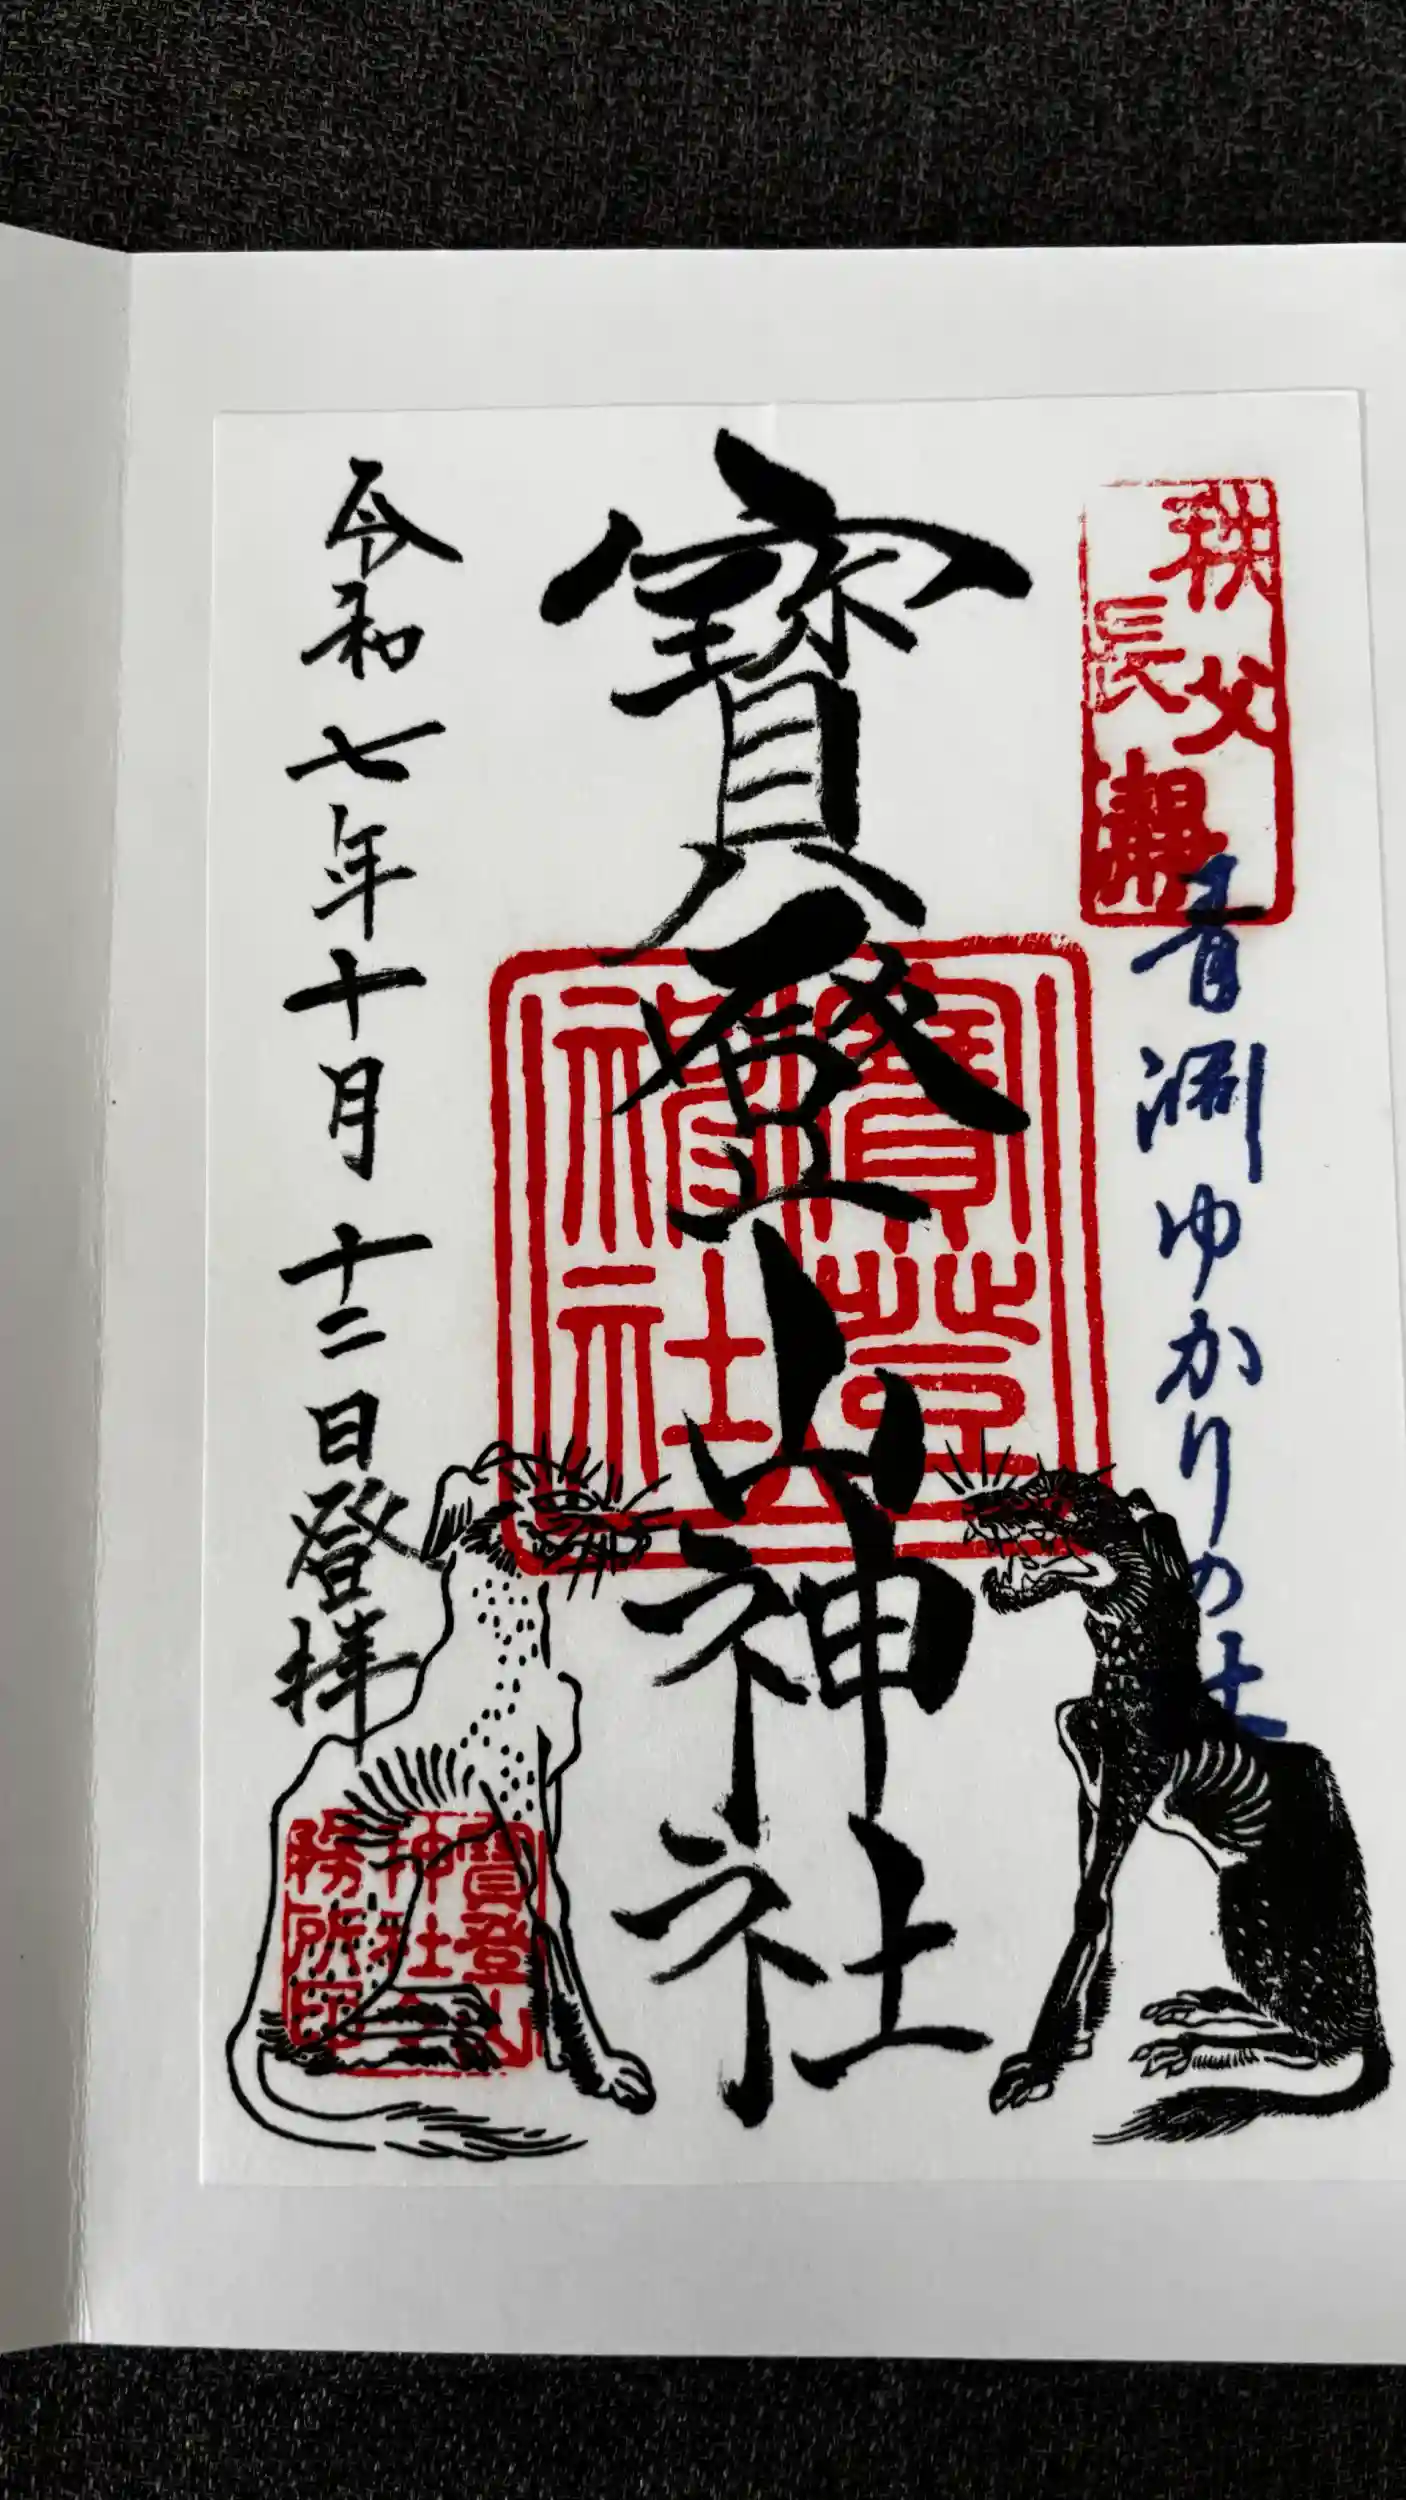 秩父
長瀞
青渊ゆかりの社
寳登山神社
寳登山
神社
令和七年十月十二日登拝
寳登山
神社
務所印